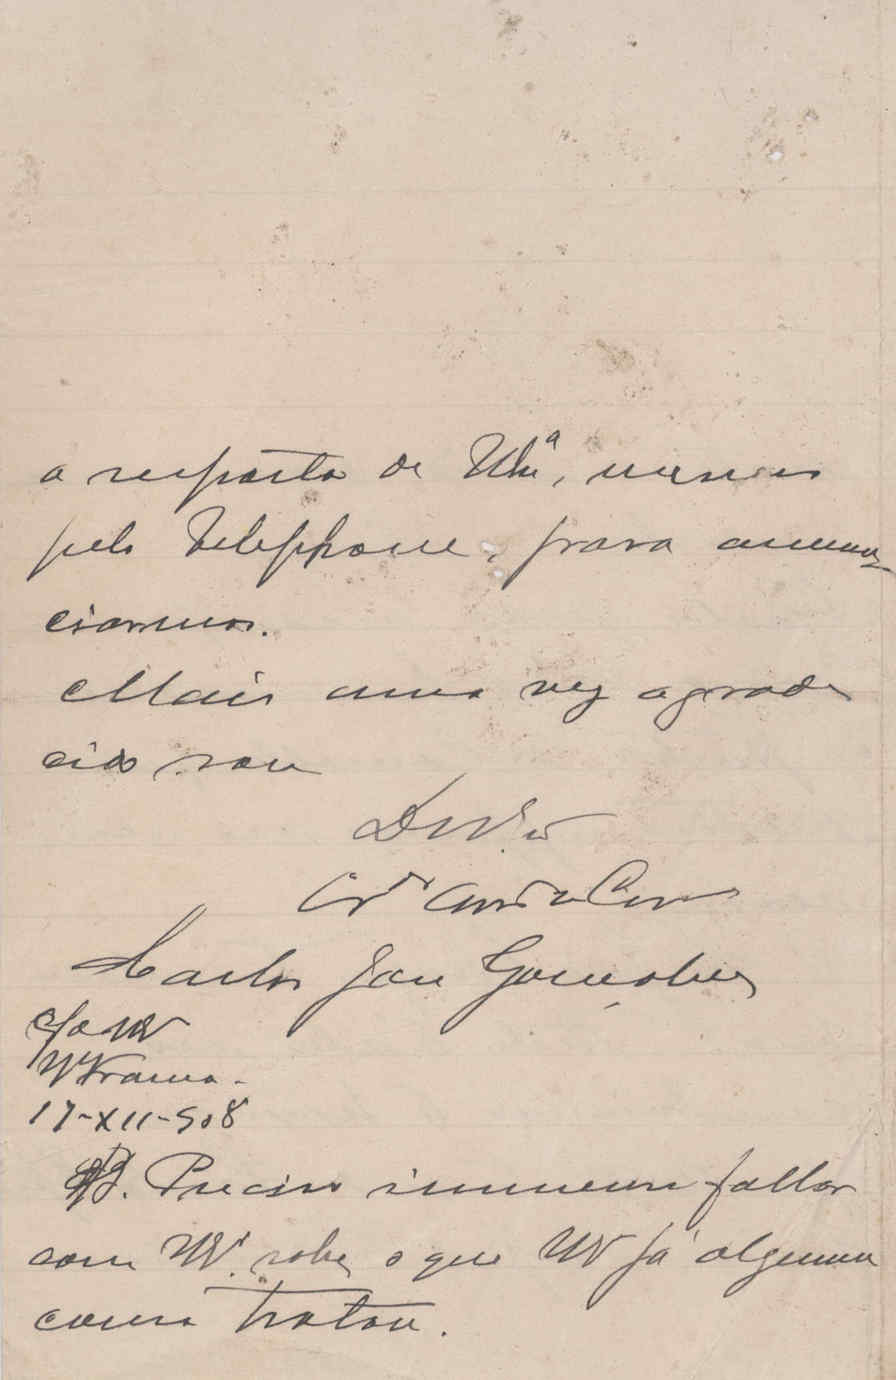 a resposta de Vmcê, mesmo
pelo telephone, para annun-
ciarmos.
Mais uma vez agrade
cido sou
De V. Sª
Crº Amº e
Carlos José Gonçalves
17-XII-908
PS. Preciso immenso fallar
com V. sobre o que V. já alguma
cousa tratou.